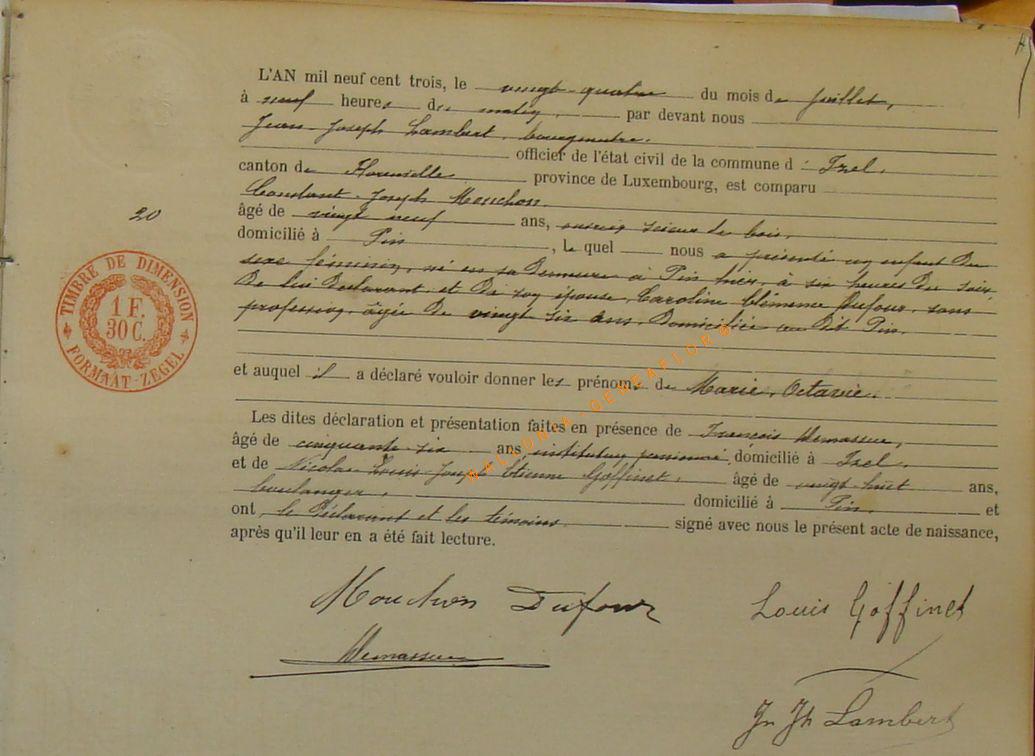 L'AN mil neuf cent trois, le vingt-quatre du mois de juillet,
à neuf heures du matin, par devant nous
Jean-Joseph Lambert, bourgmestre.
officier de l'état civil de la commune d'Izel,
canton de Florenville province de Luxembourg, est comparu
Constant-Joseph Mouchon
20
âgé de vingt neuf ans, ouvrier scieur de bois,
domicilié à Pin, lequel nous a présenté un enfant du
sexe féminin, né en sa demeure à Pin hier, à six heures du soir,
De lui Déclarant et De son épouse, Caroline Clémence Dufour, sans
profession, âgée De vingt six ans, Domiciliée au dit Pin.
et auquel il a déclaré vouloir donner les prénoms de Marie, Octavie.
Les dites déclaration et présentation faites en présence de François Demasseux,
âgé de cinquante-six ans instituteur pensionné, domicilié à Izel,
et de Nicolas Louis Joseph Etienne Goffinet, âgé de vingt-huit ans,
boulanger, domicilié à Pin, et
ont le Déclarant et les témoins signé avec nous le présent acte de naissance,
après qu'il leur en a été fait lecture.
Mouchon Dufour Louis Goffinet
Jn Jh Lambert
TIMBRE DE DIMENSION
1 F.
30 C.
FORMAAT-ZEGEL
WALLONIA-GENEAFLORE